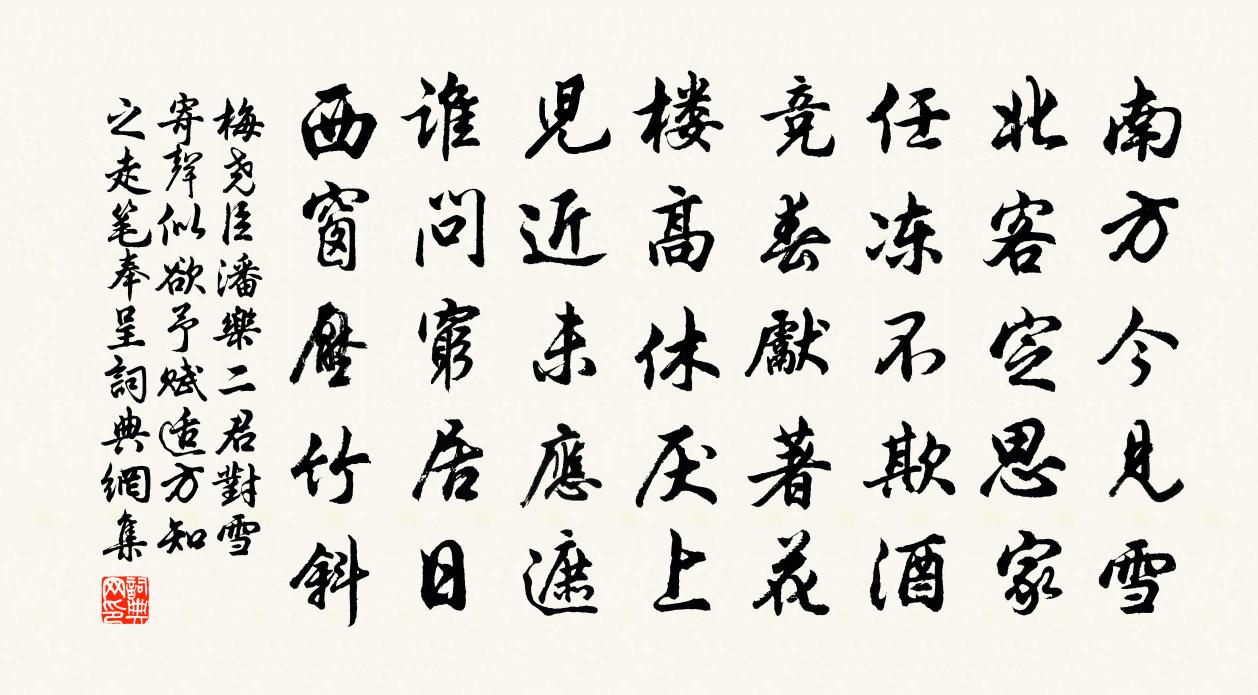 南方今見雪
北客定思家
任冻不欺酒
竞春獻著花
楼高休厌上
見近未應遮
谁問窮居日
西窗壓竹斜
梅尧臣潘樂二君對雪
寄聲似欲予赋适方知
之走笔奉呈詞典網集